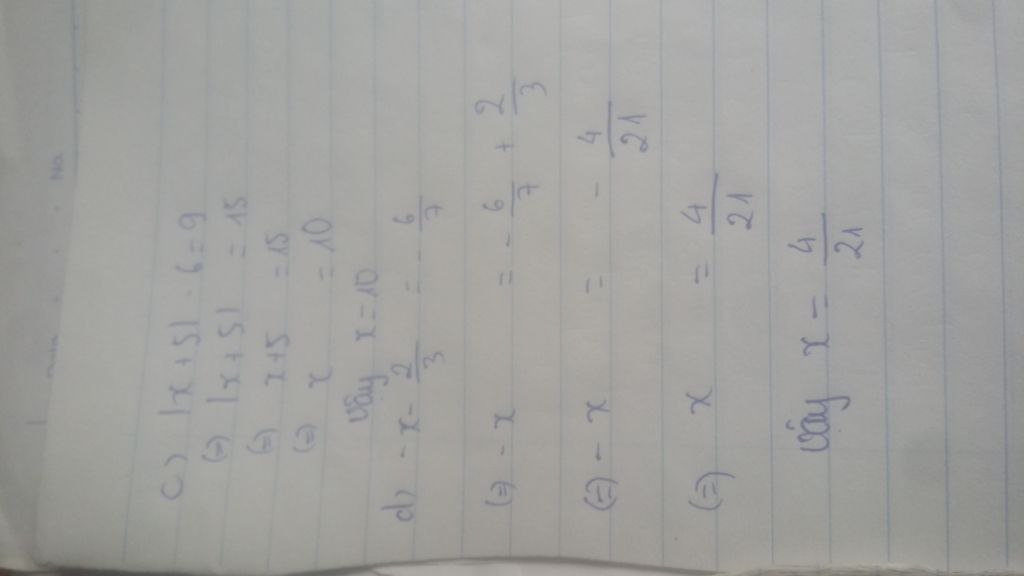 No.
c) |x + 5| - 6 = 9
(=) |x + 5| = 15
(=) x + 5 = 15
(=) x = 10
Vậy x = 10
d) - x - 2/3 = - 6/7
(=) - x = - 6/7 + 2/3
(=) - x = - 4/21
(=) x = 4/21
Vậy x = 4/21